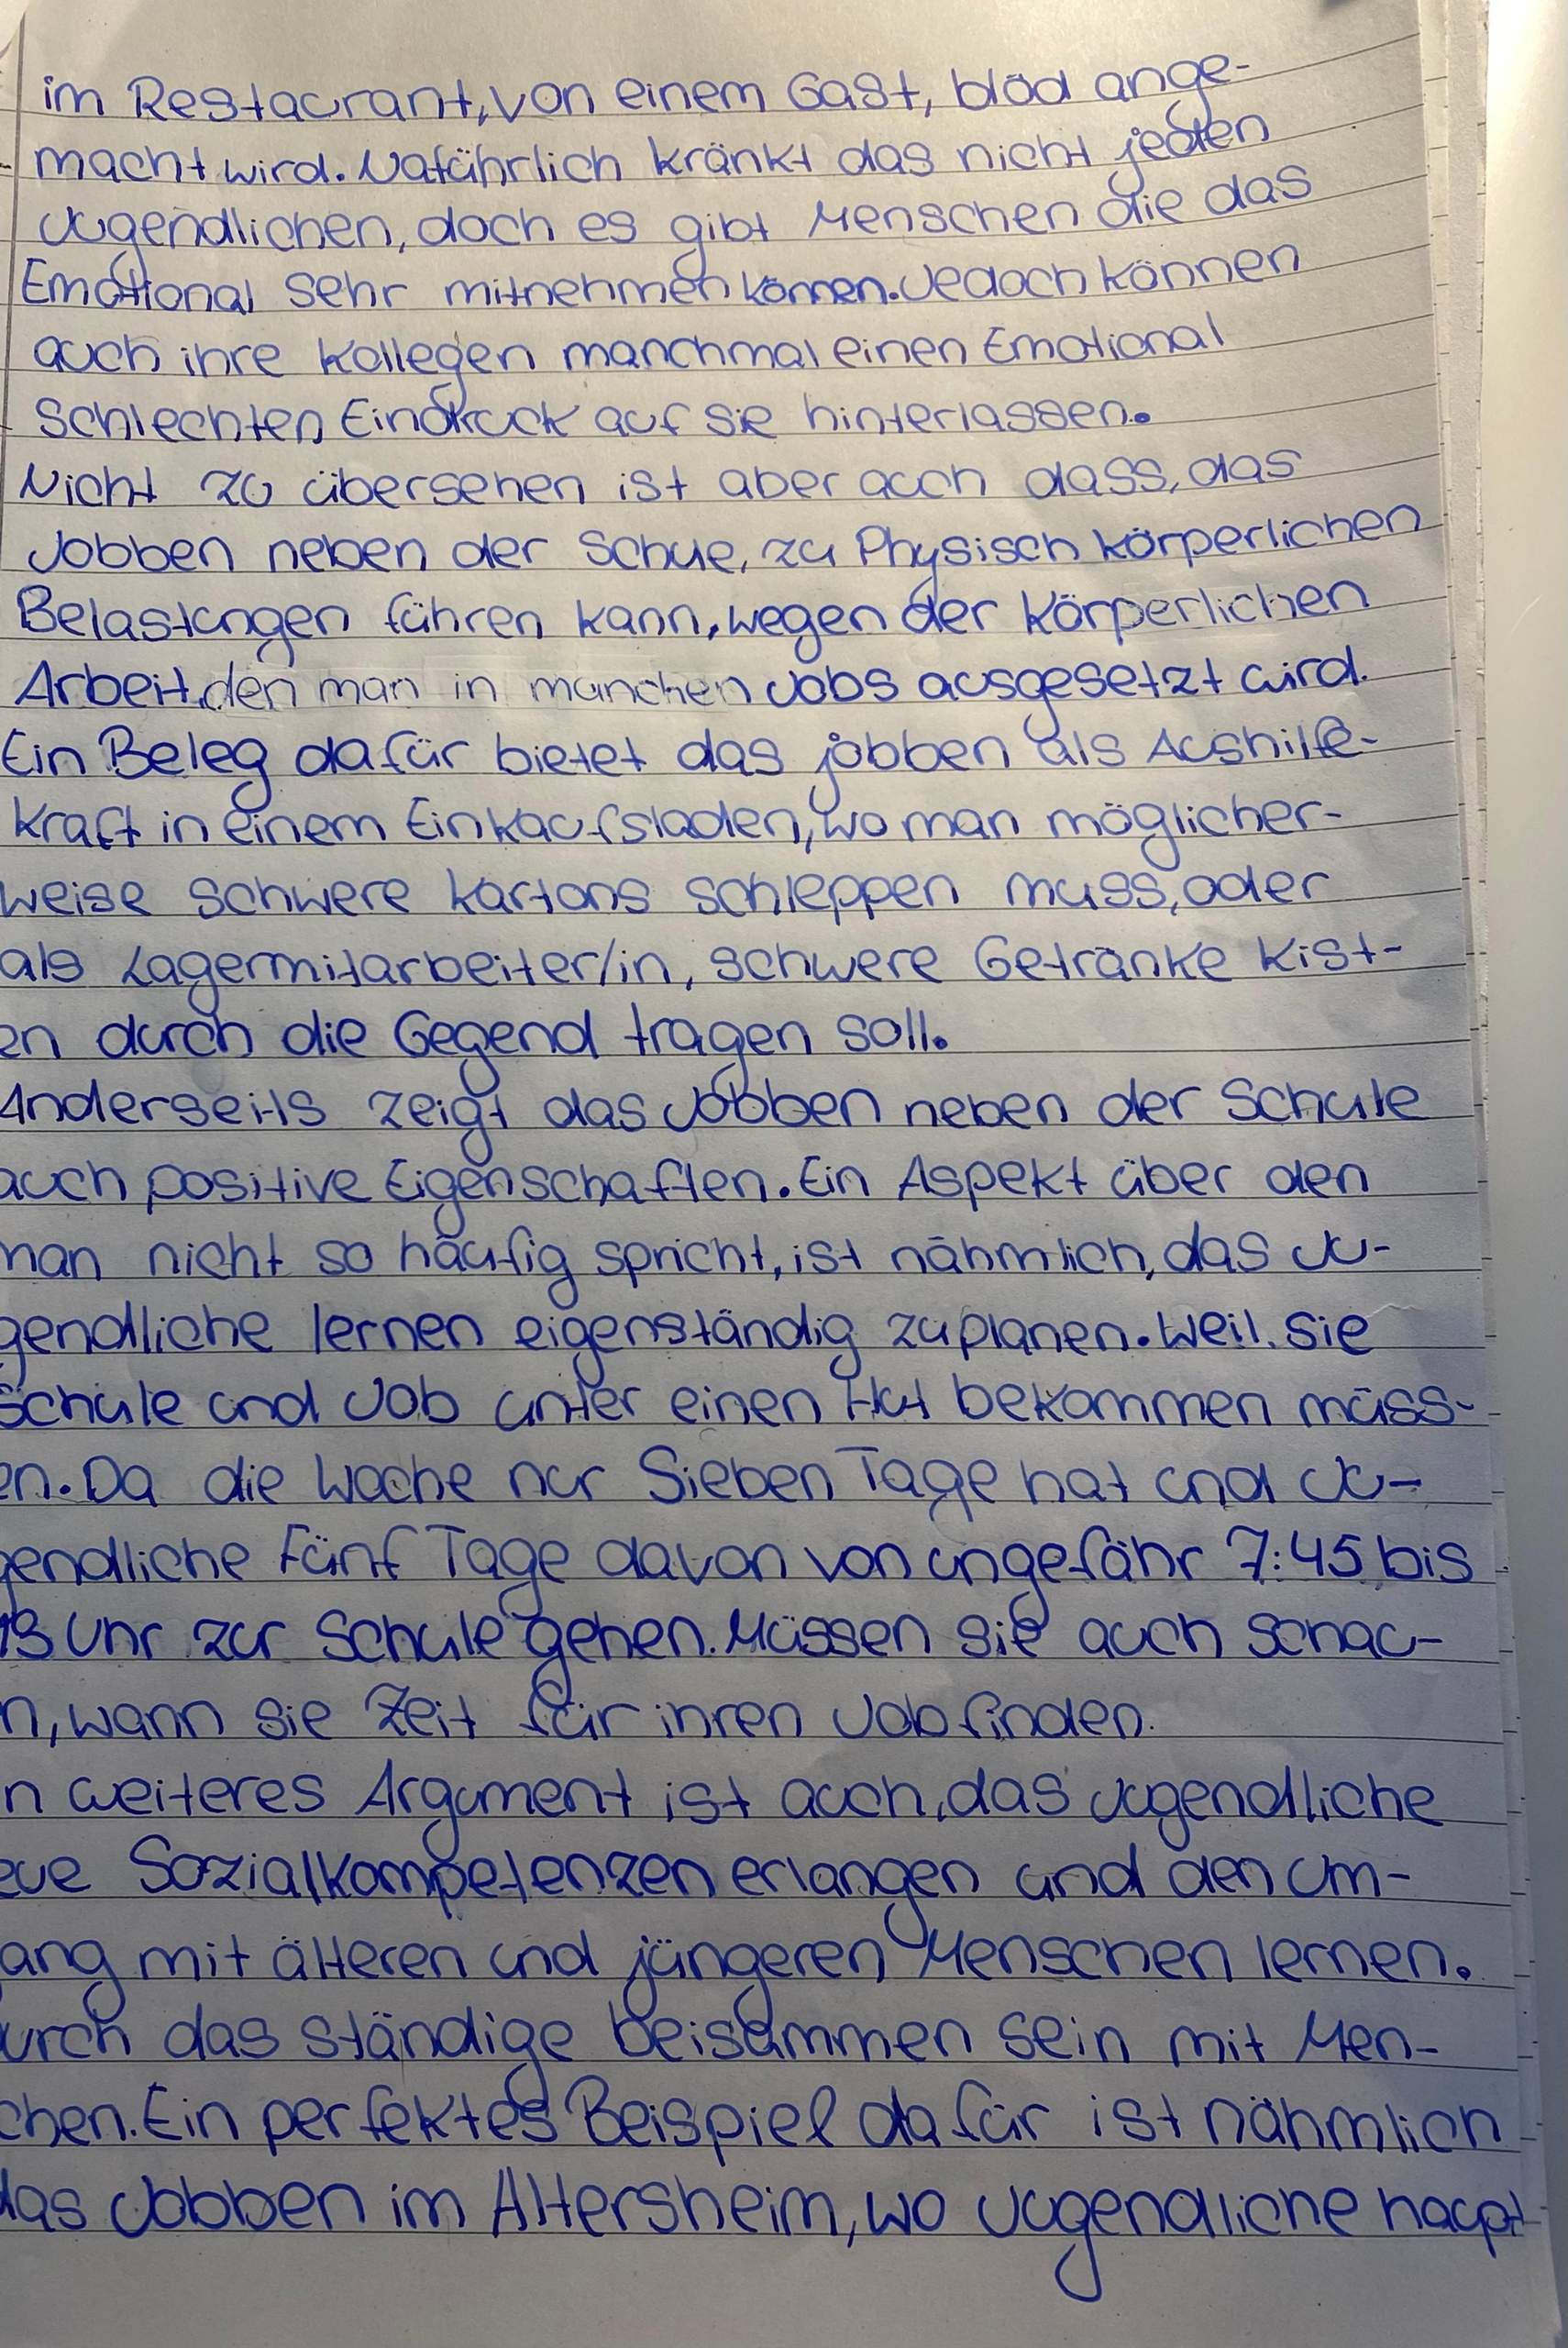 im Restaurant, von einem Gast, blöd ange-
macht wird. Natührlich kränkt das nicht jeden
Jugendlichen, doch es gibt Menschen die das
Emotional sehr mitnehmen können. Jedoch können
auch ihre Kollegen manchmal einen Emotional
schlechten Eindruck auf sie hinterlassen.
Nicht zu übersehen ist aber auch dass, das
Jobben neben der Schule, zu Physisch körperlichen
Belastungen führen kann, wegen der körperlichen
Arbeit, den man in manchen Jobs ausgesetzt wird.
Ein Beleg dafür bietet das jobben als Aushilfe-
kraft in einem Einkaufsladen, wo man möglicher-
weise schwere Kartons schleppen muss, oder
als Lagermitarbeiter/in, schwere Getränke Kist-
en durch die Gegend tragen soll.
Anderseits zeigt das Jobben neben der Schule
auch positive Eigenschaften. Ein Aspekt über den
man nicht so häufig spricht, ist nähmlich, das Ju-
gendliche lernen eigenständig zu planen. Weil, sie
Schule und Job unter einen Hut bekommen müss-
en. Da die Woche nur Sieben Tage hat und Ju-
gendliche Fünf Tage davon von ungefähr 7:45 bis
13 Uhr zur Schule gehen. Müssen sie auch schau-
n, wann sie Zeit für ihren Job finden.
n weiteres Argument ist auch, das Jugendliche
eue Sozialkompetenzen erlangen und den Um-
ang mit älteren und jüngeren Menschen lernen.
urch das ständige beisammen sein mit Men-
chen. Ein perfektes Beispiel dafür ist nähmlich
das Jobben im Altersheim, wo Jugendliche haupt